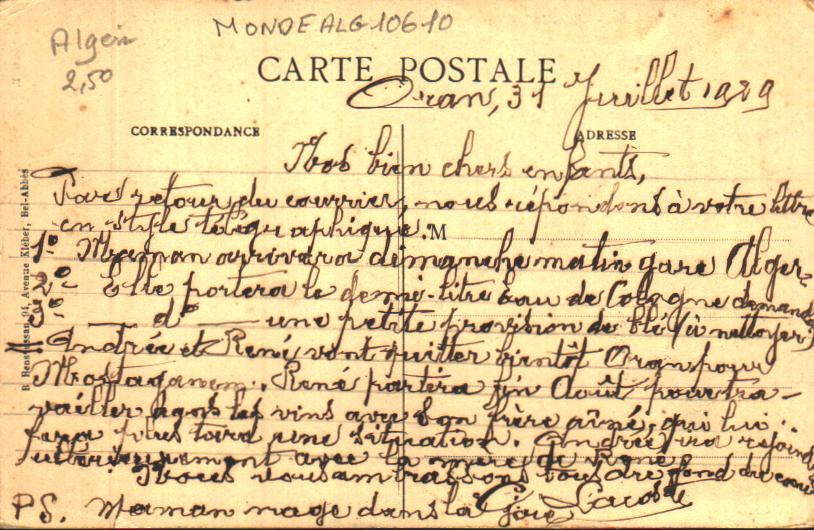 MONDEALG10610
Algerie
2,50
CARTE POSTALE
Oran, 31 Juillet 1929
CORRESPONDANCE
ADRESSE
Nos bien chers enfants,
Par retour du courrier, nous répondons à votre lettre
en style télégraphique.
M
1º Maman arrivera dimanche matin gare Alger.
2º Elle portera le demi-litre Eau de Cologne demandé
3º — dº — une petite provision de blé (à nettoyer)
Andrée et René vont quitter bientôt Oran pour
Mostaganem. René partira fin Août pour tra-
vailler dans les vins avec son frère aîné, qui lui
fera plus tard une situation. Andrée ira rejoindre
ultérieurement avec la mère de René.
Nous vous embrassons tous du fond du cœur
PS. Maman nage dans la Joie
B. 94, Avenue Kléber, Bel-Abbès